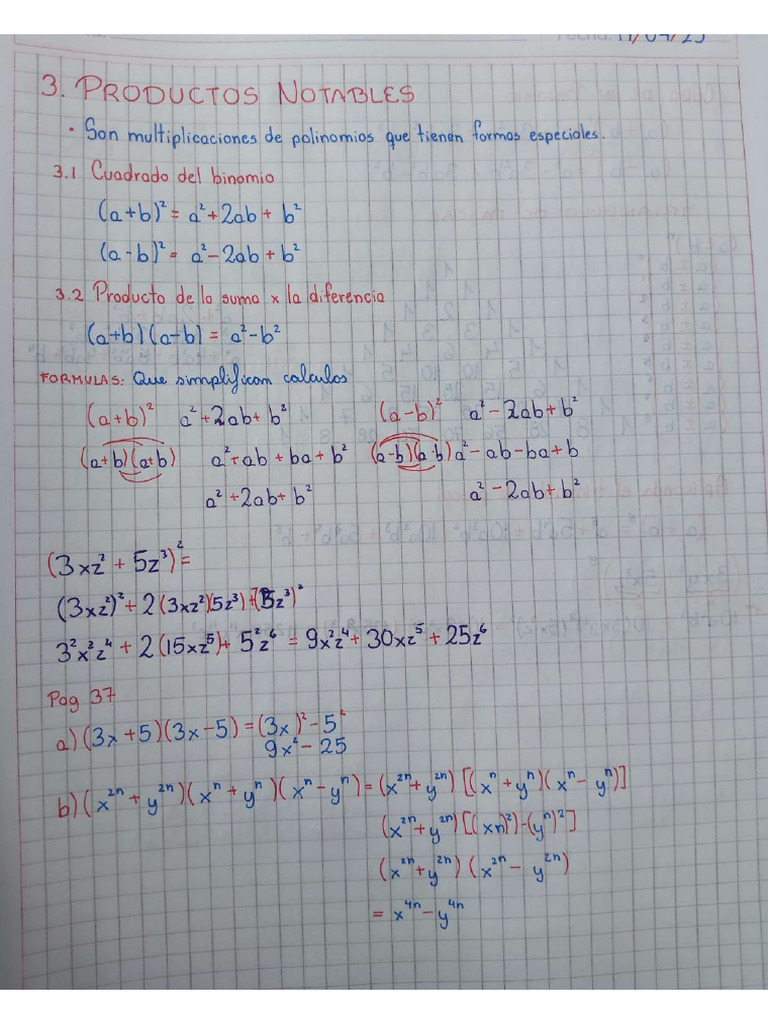 Fecha: 11/04/25
3. PRODUCTOS NOTABLES
• Son multiplicaciones de polinomios que tienen formas especiales.
3.1 Cuadrado del binomio
(a+b)² = a² + 2ab + b²
(a-b)² = a² - 2ab + b²
3.2 Producto de la suma x la diferencia
(a+b)(a-b) = a² - b²
FORMULAS: Que simplifican calculos
(a+b)² a² + 2ab + b² (a-b)² a² - 2ab + b²
(a+b)(a+b) a² + ab + ba + b² (a-b)(a-b) a² - ab - ba + b
a² + 2ab + b² a² - 2ab + b²
(3xz² + 5z³)² =
(3xz²)² + 2(3xz²)(5z³) + (5z³)²
3²x²z⁴ + 2(15xz⁵) + 5²z⁶ = 9x²z⁴ + 30xz⁵ + 25z⁶
Pag 37
a) (3x + 5)(3x - 5) = (3x)² - 5²
9x² - 25
b) (x²ⁿ + y²ⁿ)(xⁿ + yⁿ)(xⁿ - yⁿ) = (x²ⁿ + y²ⁿ)[(xⁿ + yⁿ)(xⁿ - yⁿ)]
(x²ⁿ + y²ⁿ)[(xn)²) - (yⁿ)²]
(x²ⁿ + y²ⁿ)(x²ⁿ - y²ⁿ)
= x⁴ⁿ - y⁴ⁿ